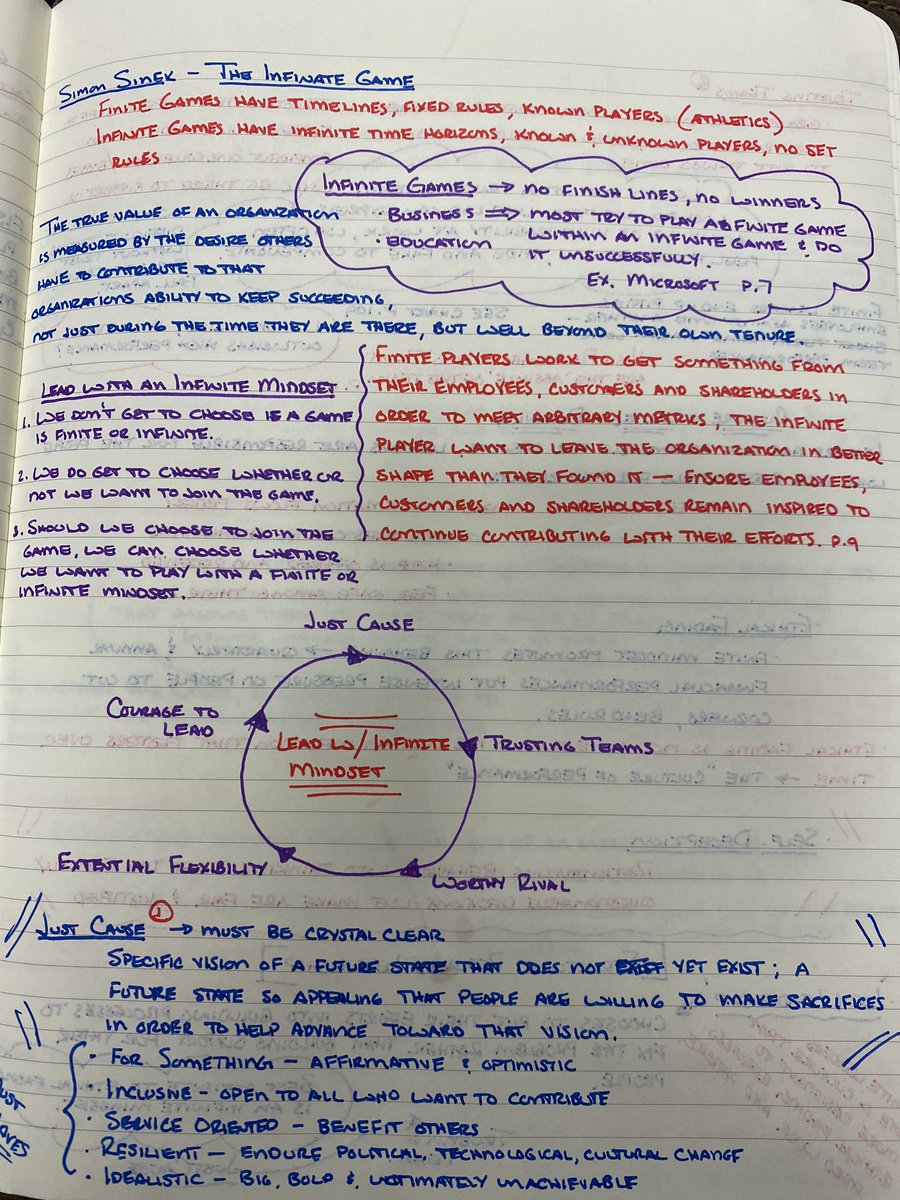 Simon Sinek - The Infinate Game
Finite Games have timelines, fixed rules, known players (athletics)
Infinite Games have infinite time horizons, known & unknown players, no set
rules
Infinite Games → no finish lines, no winners
· Business ⇒ most try to play a finite game
· Education within an infinite game & do
it unsuccessfully.
Ex. Microsoft p.7
The true value of an organization
is measured by the desire others
have to contribute to that
organizations ability to keep succeeding,
not just during the time they are there, but well beyond their own tenure.
Lead with an Infinite Mindset
1. We don't get to choose is a game
is finite or infinite.
2. We do get to choose whether or
not we want to join the game.
3. Should we choose to join the
game, we can choose whether
we want to play with a finite or
infinite mindset.
Finite players work to get something from
their employees, customers and shareholders in
order to meet arbitrary metrics, the infinite
player want to leave the organization in better
shape than they found it — ensure employees,
customers and shareholders remain inspired to
continue contributing with their efforts. p.9
Just Cause
Courage to
Lead
Lead w/ Infinite
Mindset
Trusting Teams
Extential Flexibility
Worthy Rival
Just Cause ① → must be crystal clear
Specific vision of a future state that does not exist yet exist; a
future state so appealing that people are willing to make sacrifices
in order to help advance toward that vision.
· For Something - affirmative & optimistic
· Inclusive - open to all who want to contribute
· Service Oriented - benefit others
· Resilient - endure political, technological, cultural change
· Idealistic - big, bold & ultimately unachievable